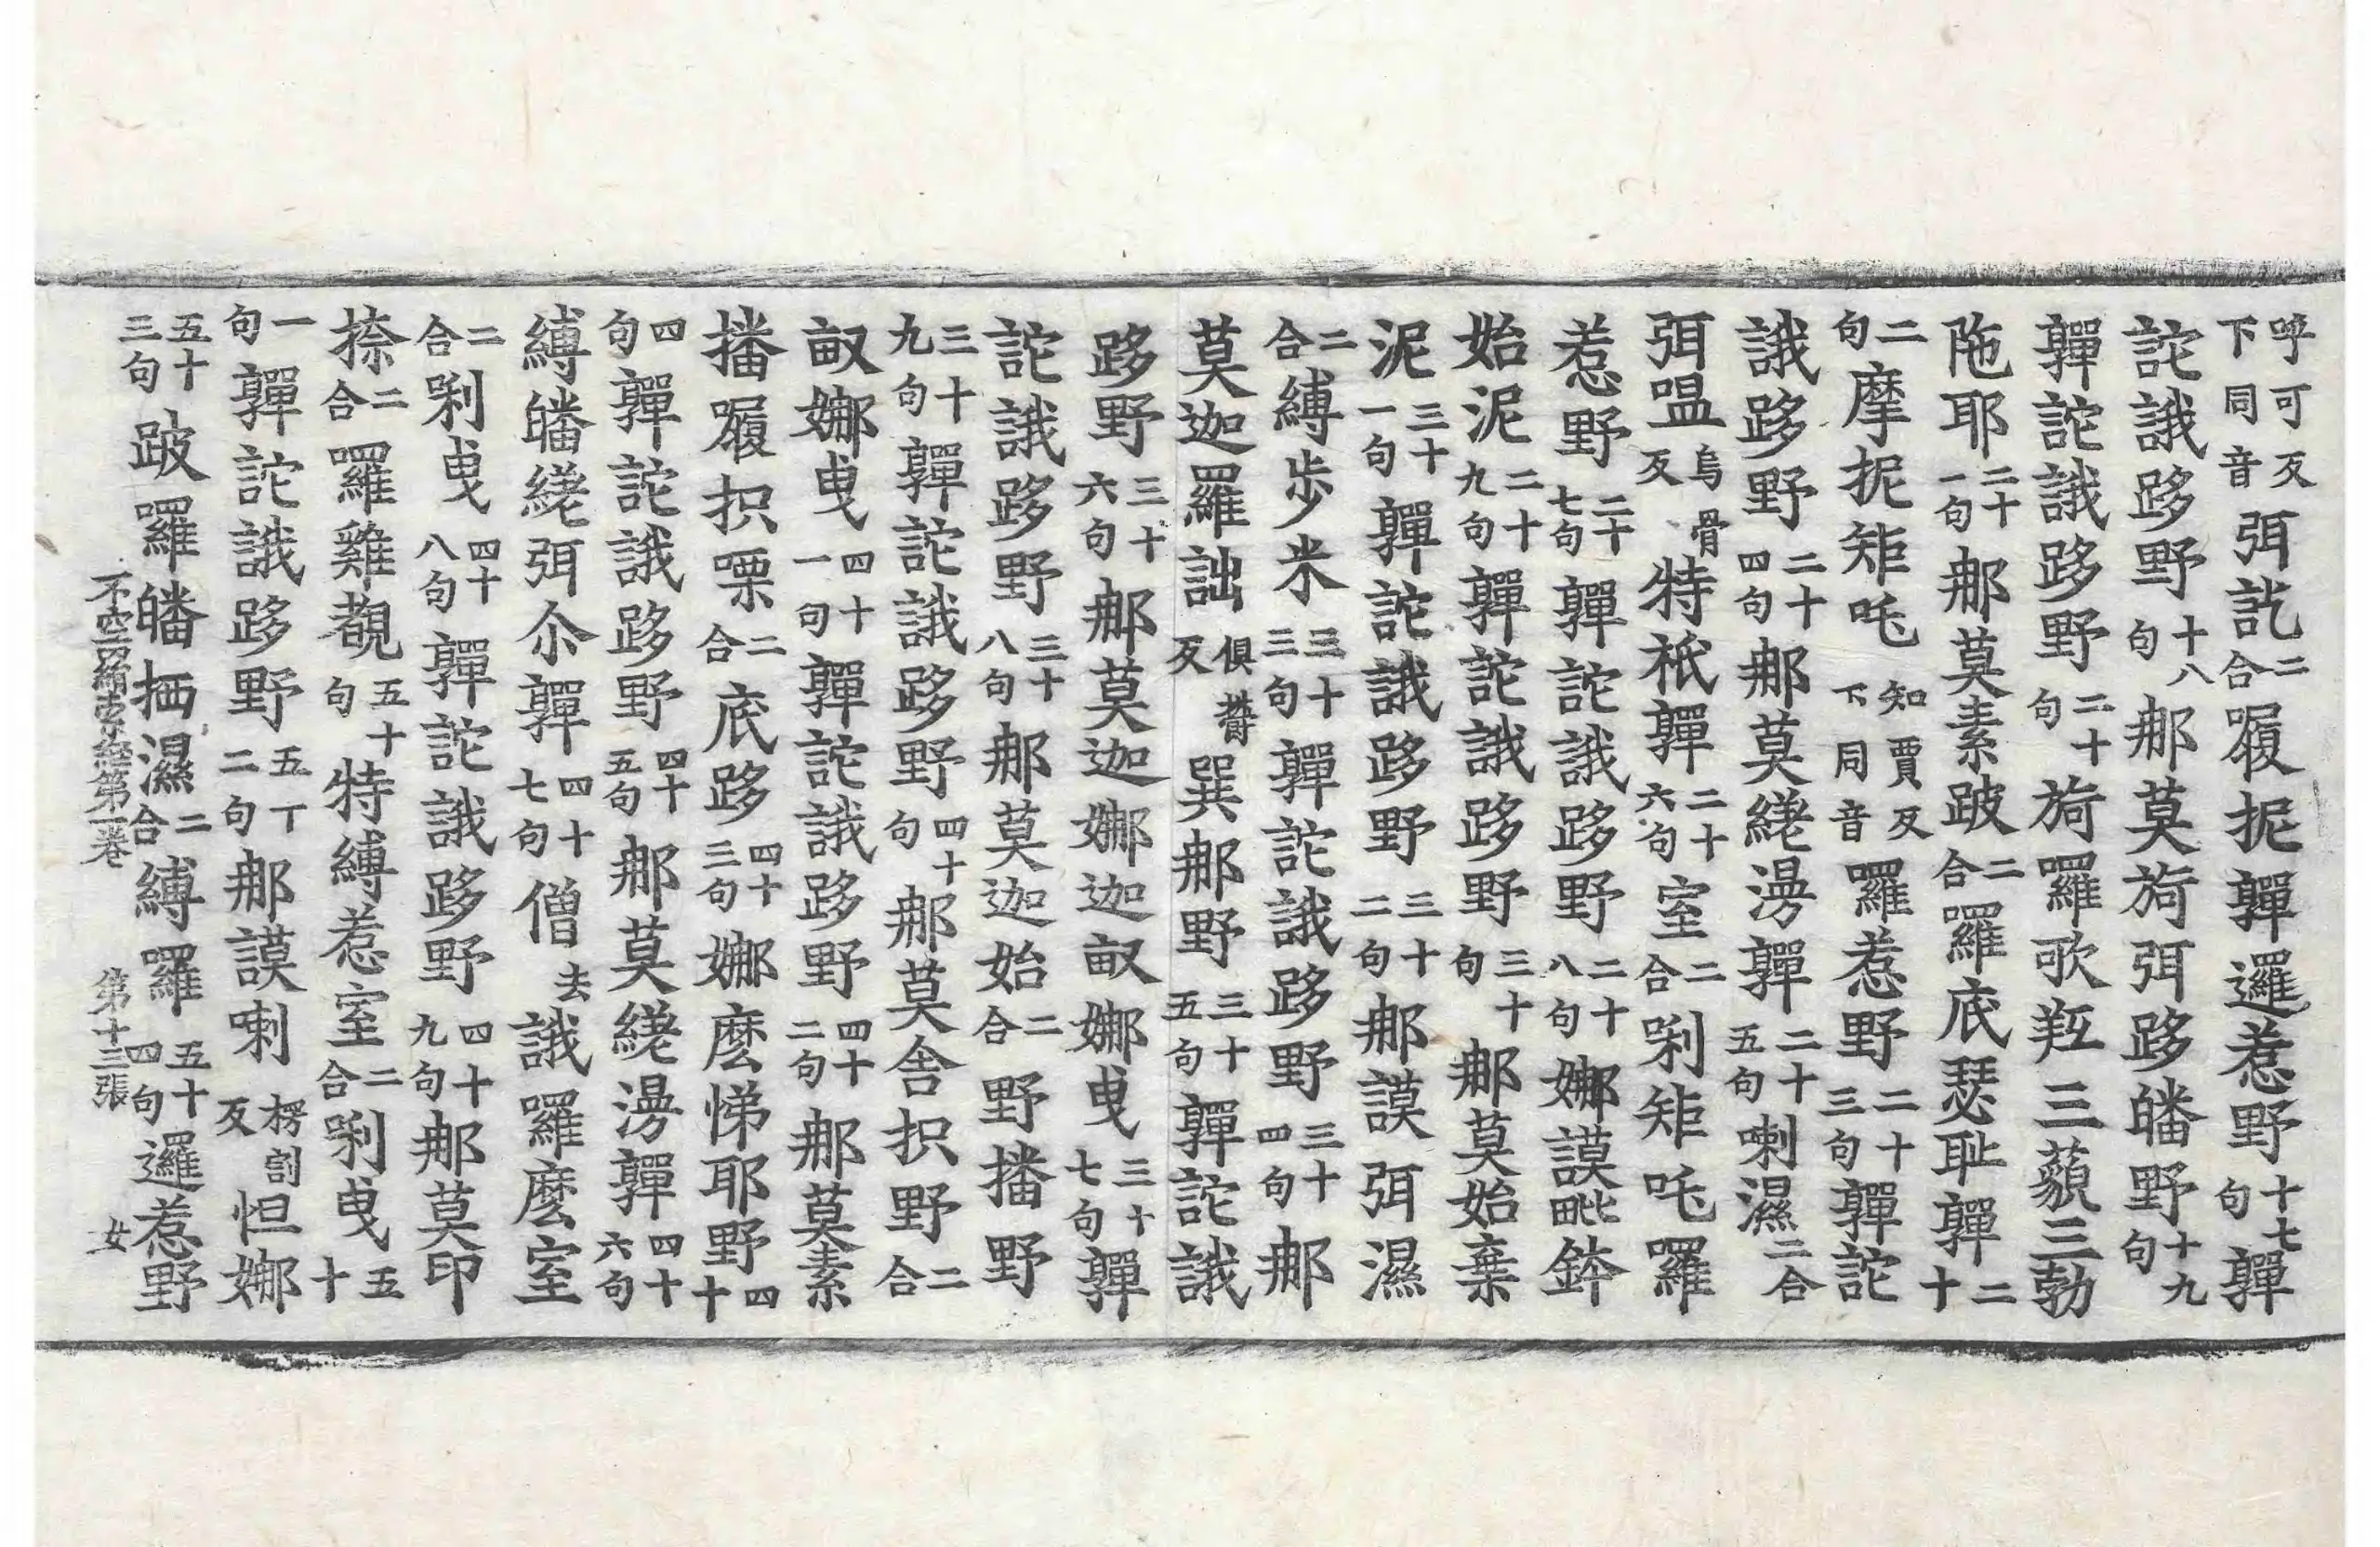 呼可反下同音弭訖二合履抳嚲邏惹野十七句嚲
詑誐跢野十八句那莫旖弭跢皤野十九句
嚲詑誐跢野二十句旖羅歌羟三藐三勃
陁耶二十一句那莫素跛二合羅底瑟耻嚲二十
二句摩抳矩吒知賈反下同音羅惹野二十三句嚲詑
誐跢野二十四句那莫繞漫嚲二十五句喇濕二合
弭嗢烏骨反特祇嚲二十六句室二合唎矩吒羅
惹野二十七句嚲詑誐跢野二十八句娜謨毗鉢
始泥二十九句嚲詑誐跢野三十句那莫始棄
泥三十一句嚲詑誐跢野三十二句那謨弭濕
二合縛步米三十三句嚲詑誐跢野三十四句那
莫迦羅詘俱欝反巽那野三十五句嚲詑誐
跢野三十六句那莫迦娜迦畝娜曳三十七句嚲
詑誐跢野三十八句那莫迦始二合野播野
三十九句嚲詑誐跢野四十句那莫舍抧野二合
畝娜曳四十一句嚲詑誐跢野四十二句那莫素
播履抧㗚二合底跢四十三句娜麽悌耶野四十
四句嚲詑誐跢野四十五句那莫繞漫嚲四十六句
縛皤繞弭尒嚲四十七句僧去誐羅麽室
二合唎曳四十八句嚲詑誐跢野四十九句那莫印
捺二合羅雞覩五十句特縛惹室二合唎曳五十
一句嚲詑誐跢野五十二句那謨喇楞割反怛娜
五十三句跛羅皤㭠濕二合縛羅五十四句邏惹野
不空罥索經第一卷 第十三張 女